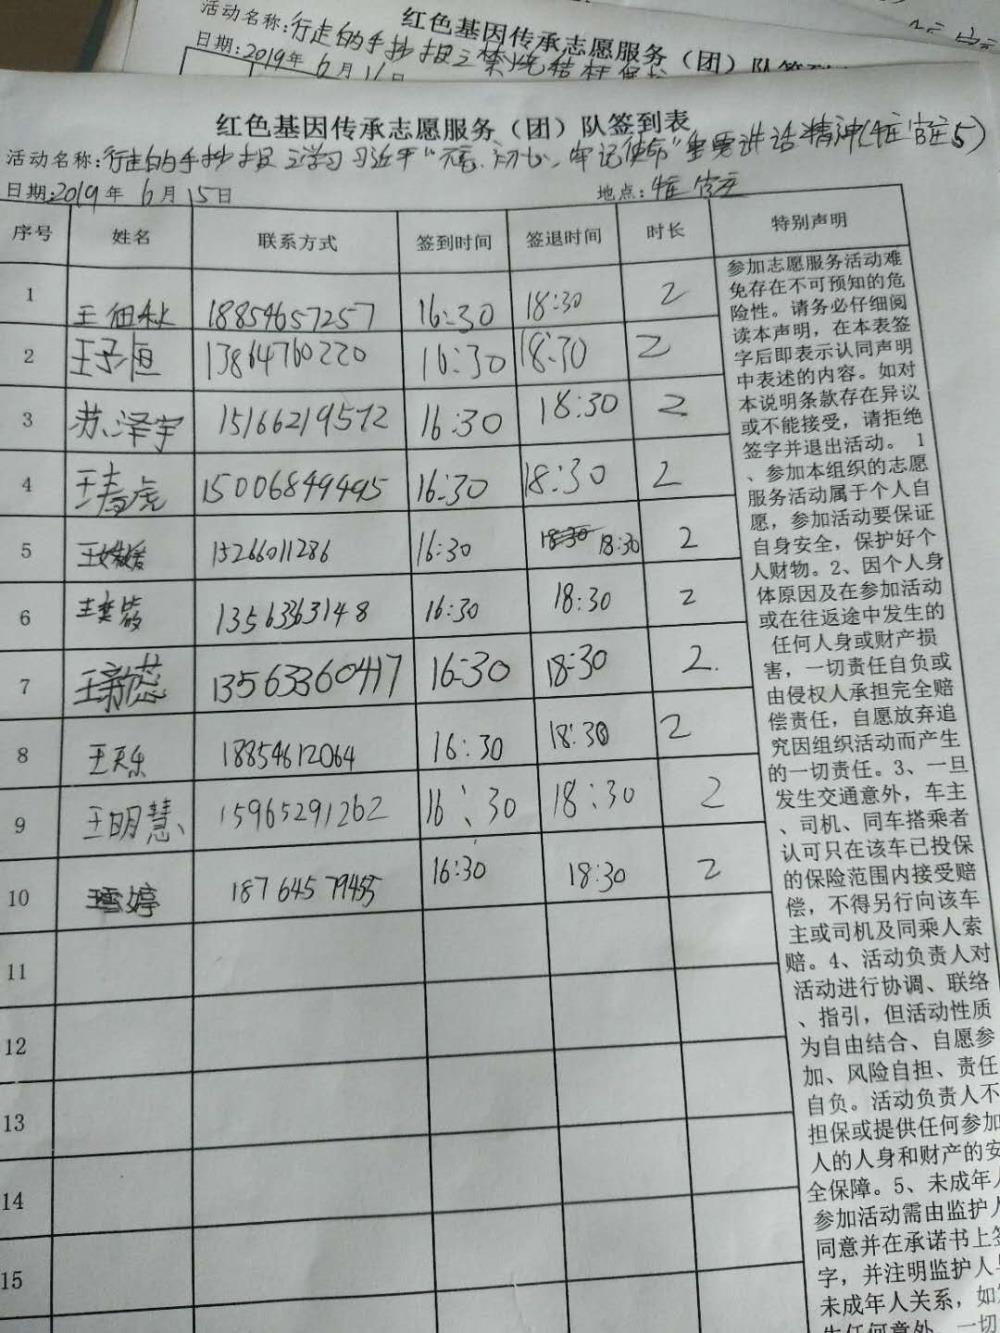 红色基因传承志愿服务（团）队签到
活动名称:行走的手抄报之禁烧秸秆
日期:2019年6月16日
红色基因传承志愿服务（团）队签到表
活动名称:行走的手抄报之学习习近平"不忘初心、牢记使命"重要讲话精神(5)
日期:2019年6月15日 地点:
序号 姓名 联系方式 签到时间 签退时间 时长 特别声明
1 18854657257 16:30 18:30 2
2 王子恒 13864760220 16:30 18:30 2
3 苏泽宇 15166219572 16:30 18:30 2
4 15006849495 16:30 18:30 2
5 15266011286 16:30 18:30 18:30 2
6 13563363148 16:30 18:30 2
7 王新蕊 13563360417 16:30 18:30 2.
8 王天乐 18854612064 16:30 18:30 2
9 王明慧 15965291262 16:30 18:30 2
10 18764579455 16:30 18:30 2
11
12
13
14
15
参加志愿服务活动难
免存在不可预知的危
险性。请务必仔细阅
读本声明，在本表签
字后即表示认同声明
中表述的内容。如对
本说明条款存在异议
或不能接受，请拒绝
签字并退出活动。 1
、参加本组织的志愿
服务活动属于个人自
愿，参加活动要保证
自身安全，保护好个
人财物。2、因个人身
体原因及在参加活动
或在往返途中发生的
任何人身或财产损
害，一切责任自负或
由侵权人承担完全赔
偿责任，自愿放弃追
究因组织活动而产生
的一切责任。3、一旦
发生交通意外，车主
、司机、同车搭乘者
认可只在该车已投保
的保险范围内接受赔
偿，不得另行向该车
主或司机及同乘人索
赔。4、活动负责人对
活动进行协调、联络
、指引，但活动性质
为自由结合、自愿参
加、风险自担、责任
自负。活动负责人不
担保或提供任何参加
人的人身和财产的安
全保障。5、未成年人
参加活动需由监护人
同意并在承诺书上签
字，并注明监护人与
未成年人关系，如
生任何意外，一切